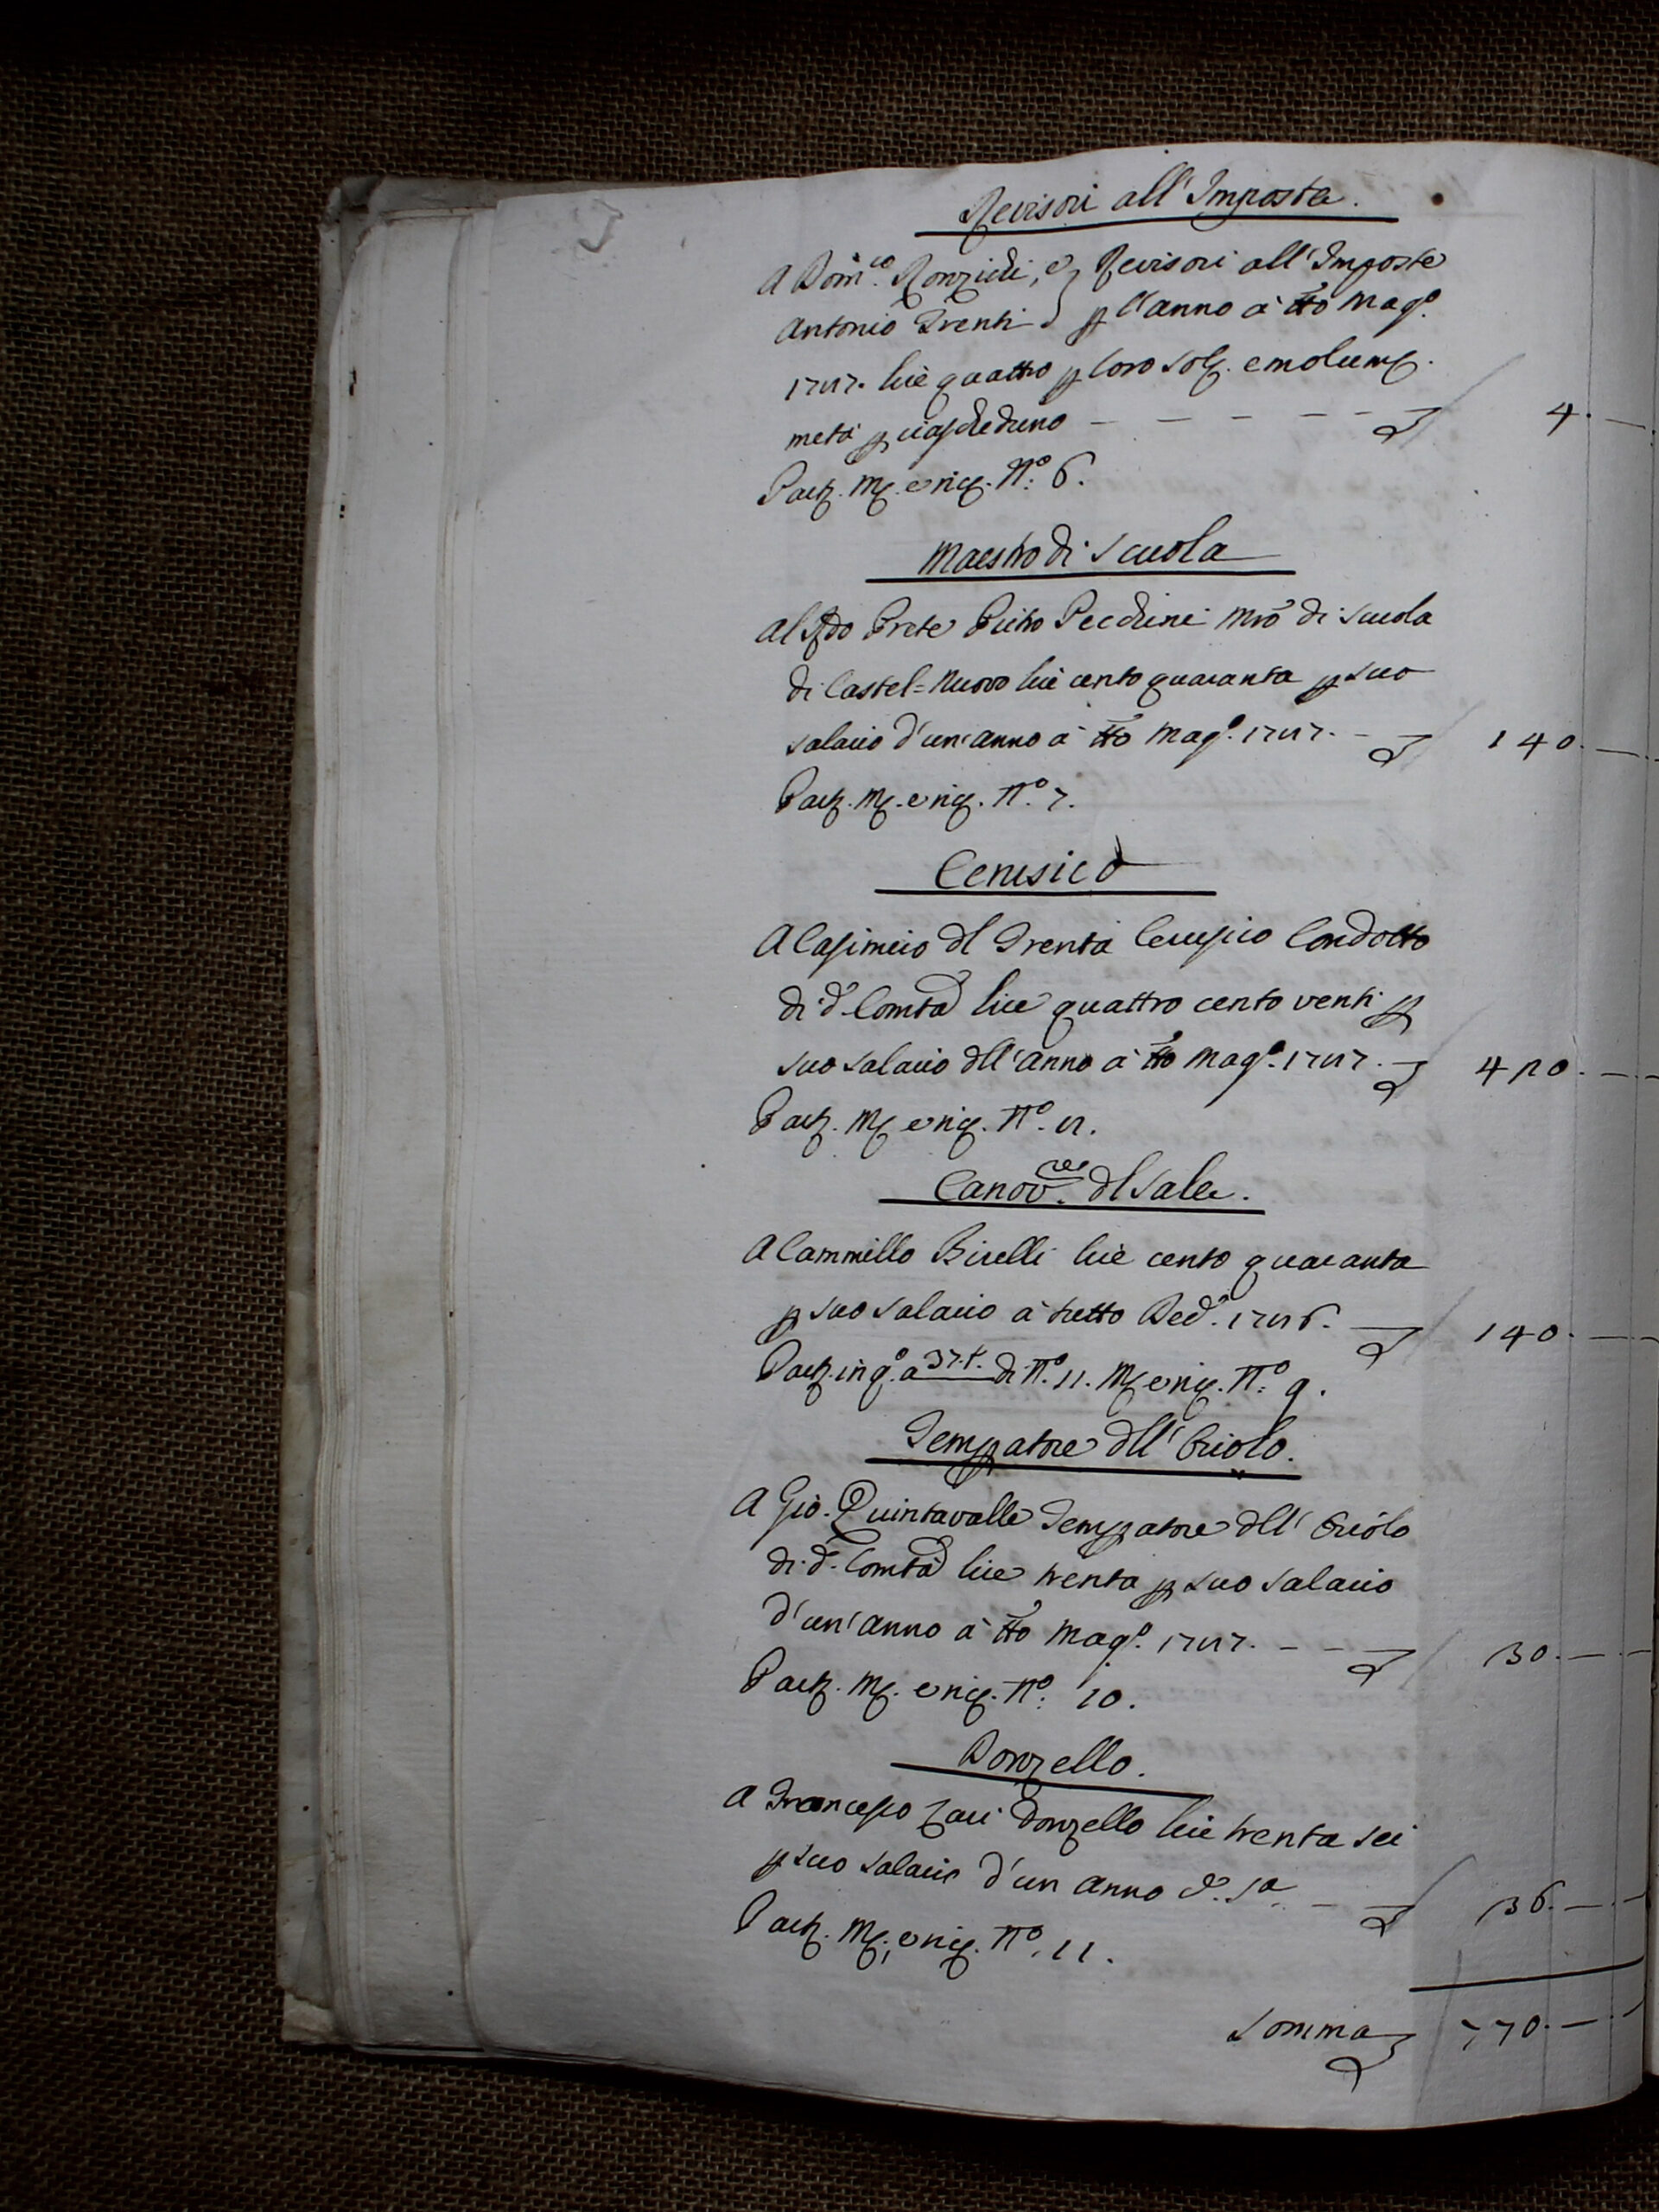 Revisori all'Imposta.
A Dom.co Ronzieri, e Revisori all'Imposte
Antonio Trenti p l'anno à tto Mag.o
lire quattro p loro sol. emolum.
metà p ciascheduno 4.
Part. M. orig. N.o 6.
Maestro di Scuola
Al Rdo Prete Pietro Pecchini Mro di Scuola
di Castel=Nuovo lire cento quaranta p suo
salario d'un'anno à tto Mag.o 140.
Part. M. orig. N.o 7.
Cerusico
A Casimiro dl Trenta Cerusico Condotto
di d. Comtà lire quattro cento venti p
suo salario dll'anno à tto Mag.o 420.
Part. M. orig. N.o
Canov.re dl Sale.
A Cammillo Birelli lire cento quaranta
p suo salario à tutto 140.
Part. in q.o a 37.t. di N.o 11. M. orig. N.o 9.
Tempatore dll'Oriolo.
A Gio. Quintavalle Tempatore dll'Oriolo
di d. Comtà lire trenta p suo salario
d'un'anno à tto Mag.o 30.
Part. M. orig. N.o 10.
Donzello.
A Francesco Zari Donzello lire trenta sei
p suo salario d'un anno d. s.a 36.
Part. M. orig. N.o 11.
Somma 770.